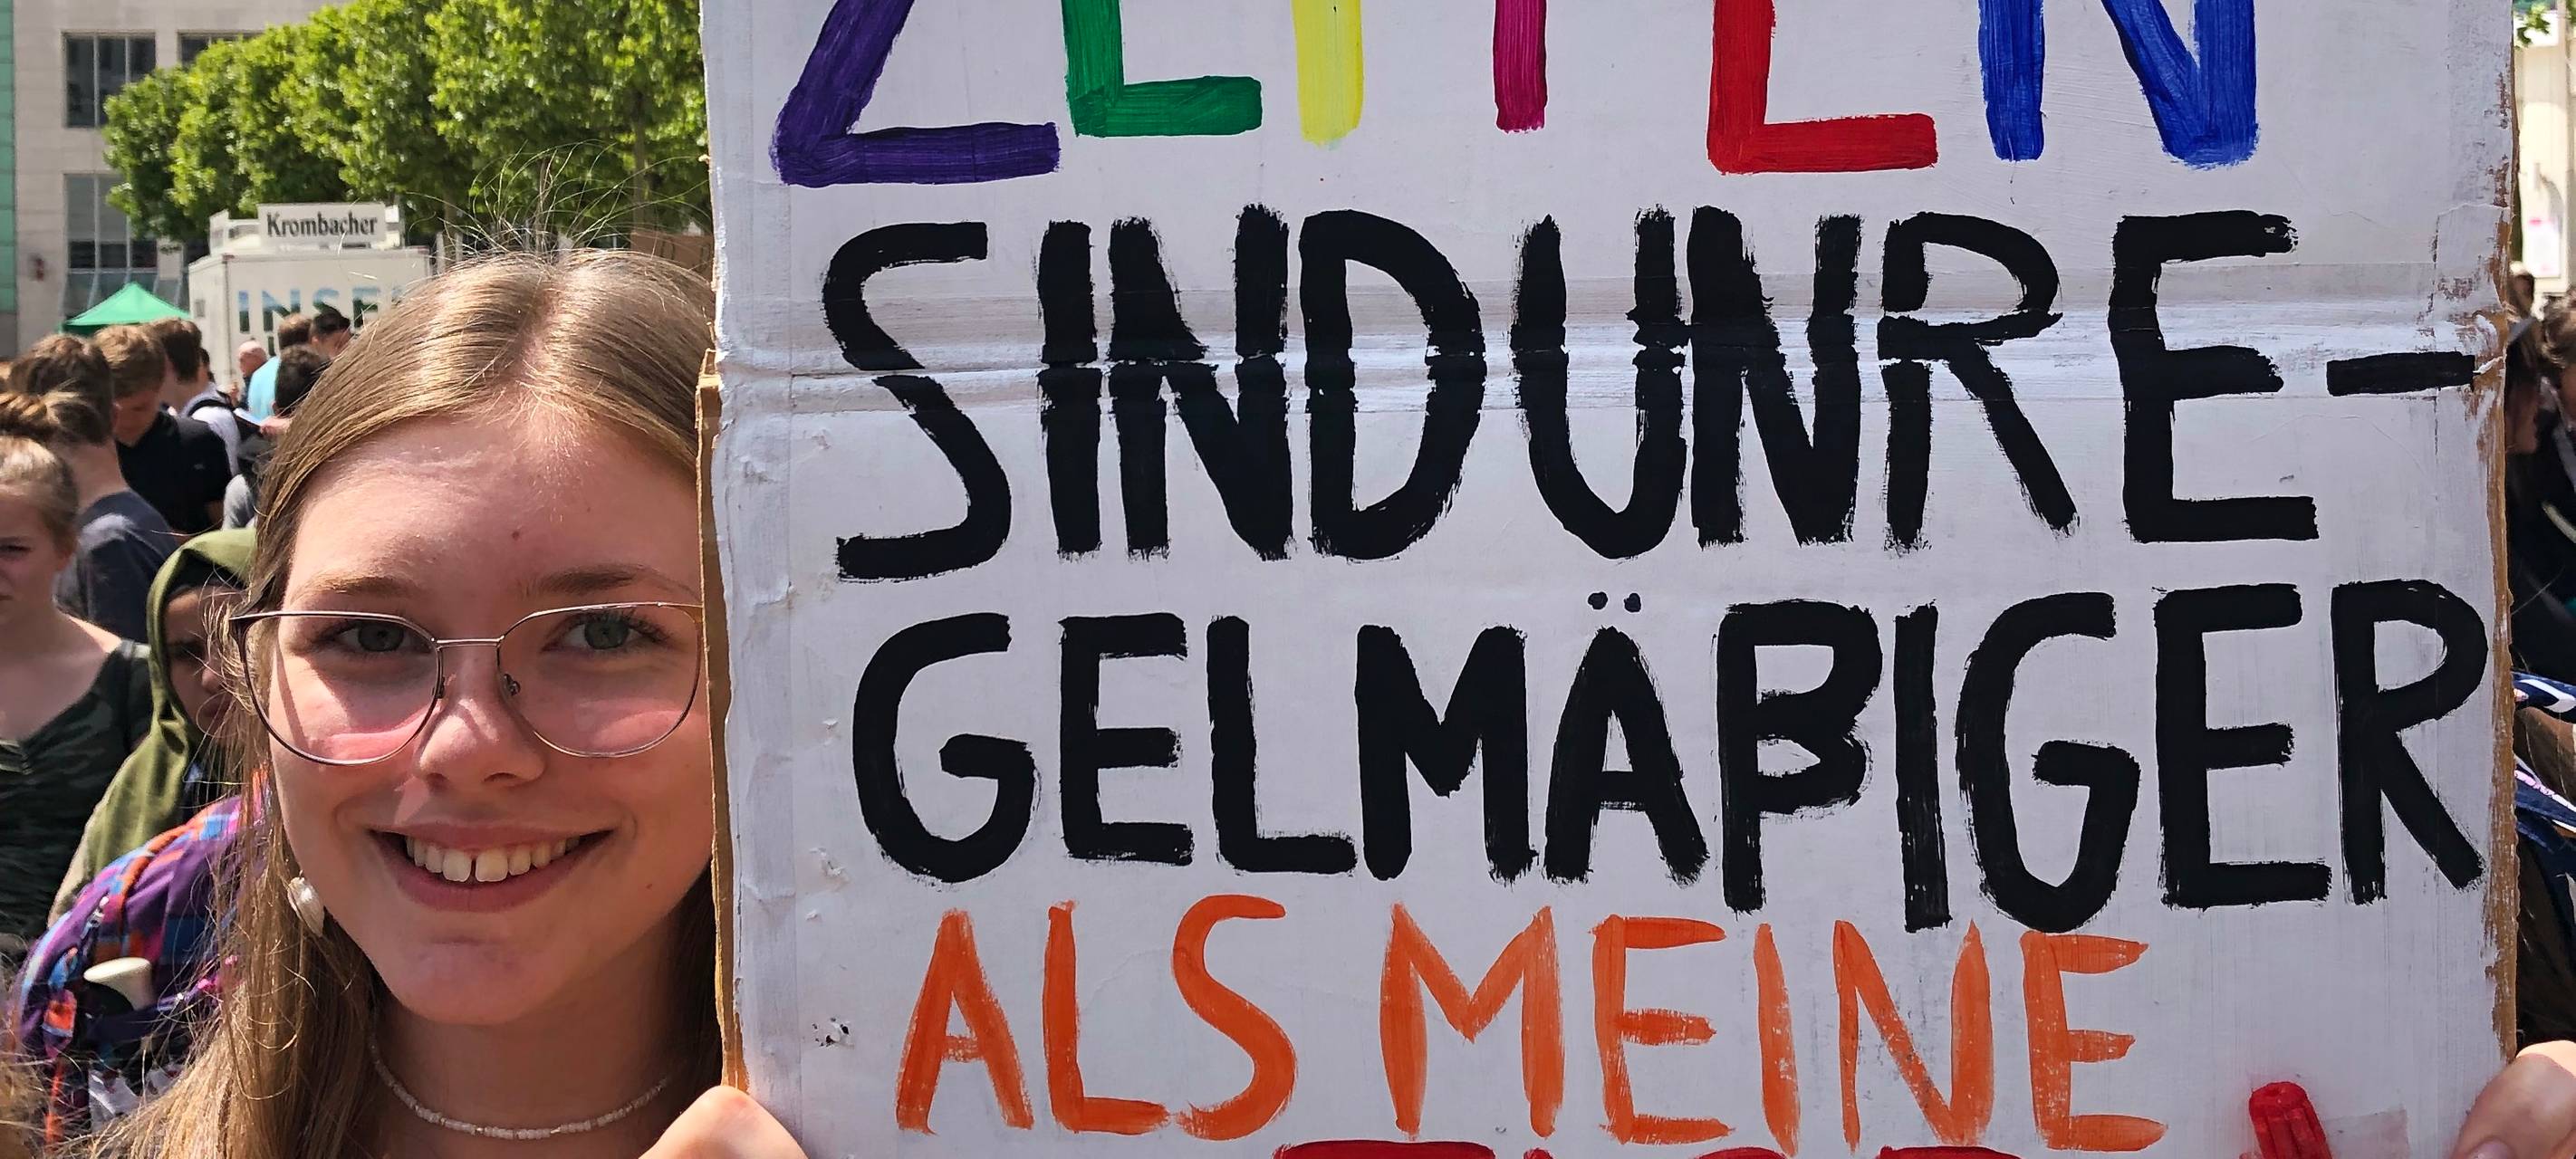 Krombacher
INSEL
ZEITEN
SIND UNRE-
GELMÄßIGER
ALS MEINE